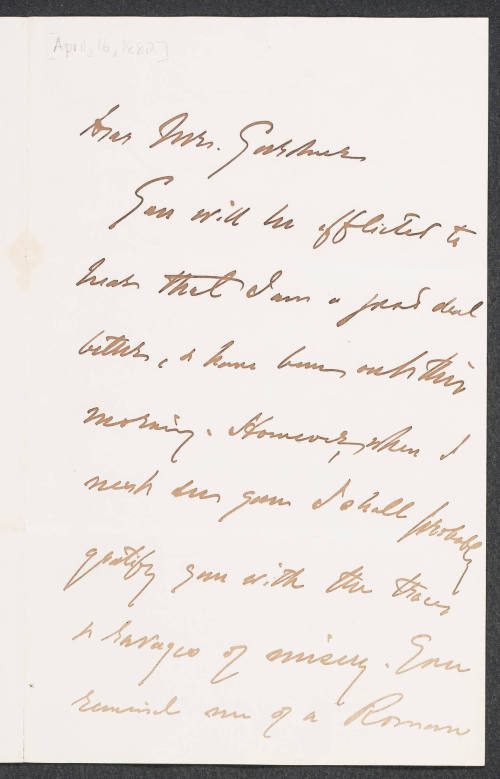 [April, 16, 1882]
Dear Mrs. Gardner
You will be afflicted to
hear that I am a good deal
better, & have been out this
morning. However, when I
next see you I shall probably
gratify you with the traces
& ravages of misery. You
remind me of a Roman